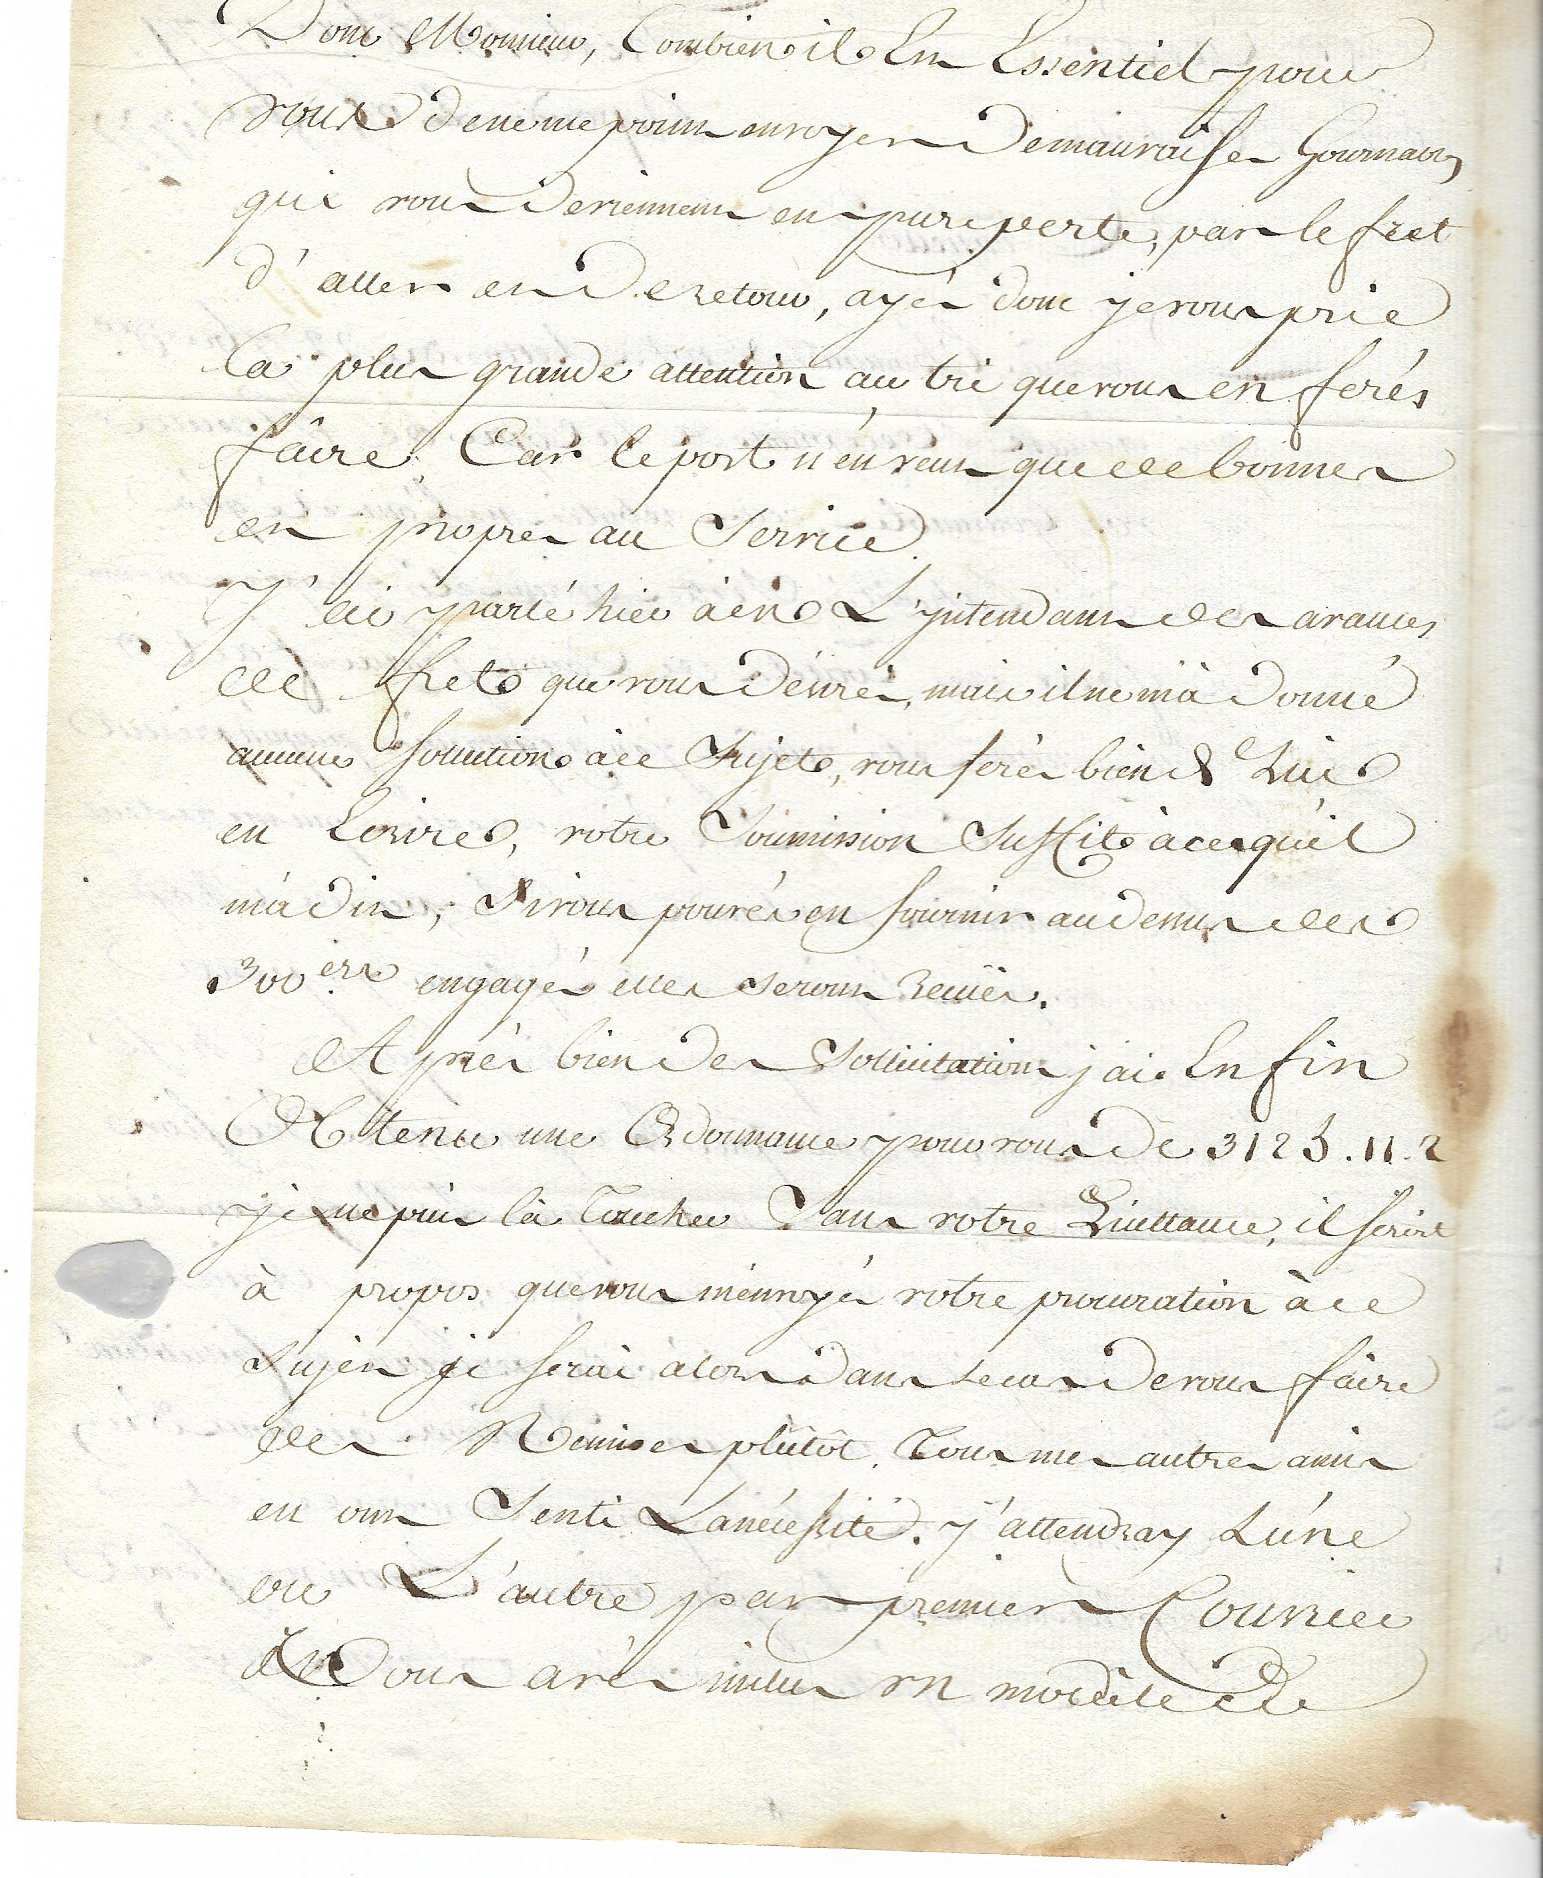 Donc Monsieur, Combien il Est Essentiel pour
vous de ne me point envoyer De mauvaises Gournables
qui vous deviennent en pure perte, par le fret
d'aller et De retour, ayés donc je vous prie
la plus grande attention au tri que vous en ferés
fâire Car le port n'en veut que de bonnes
et propres au Service
J'ai parlé hier à L'jntendant des avances
de fret que vous désirés, mais il ne m'à donné
aucune solution à ce Sujet, vous ferés bien de Lui
en Ecrire, votre Soumission Suffit à ce qu'il
m'à dit, Si vous pouvés en fournir au dessus des
300ers engagé elles seront Recües.
Après bien des Sollicitations j'ai Enfin
Obtenu une Ordonnance pour vous De 3125.11.2
je ne puis là Toucher Sans votre Quittance, il seroit
à propos que vous m'envoyés votre procuration à ce
sujet je serai alors dans le cas de vous faire
des Remises plûtôt. Tous mes autres amis
en ont Senti La nécessité. J'attendray L'une
ou L'autre par premier Courier
Vous avés inclus un modèle de